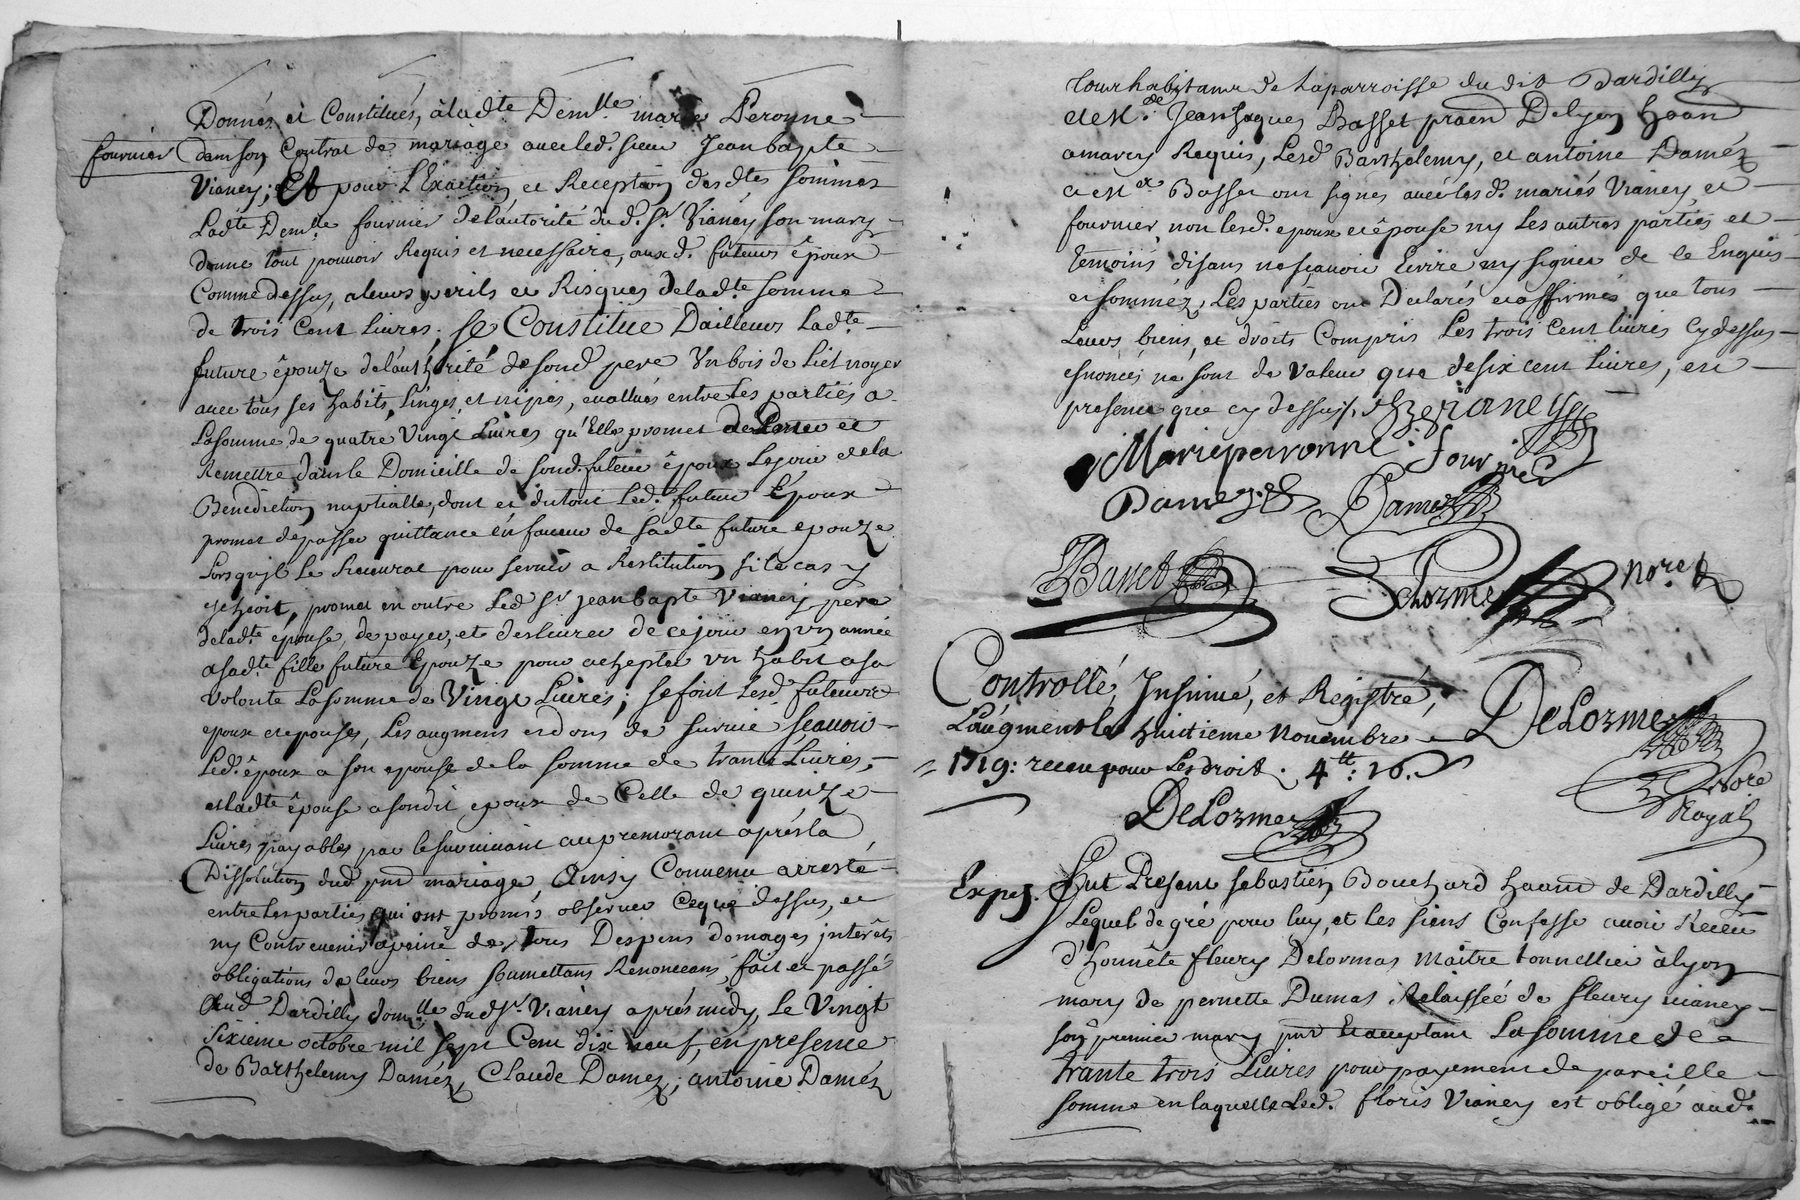 Donnés et Constitués, à ladte Demlle marie Peronne
fournier dans son Contrat de mariage avec led. sieur Jean bapte
Vianey; Et pour L'Exaction et Reception desdtes sommes
Ladte Demlle fournier de l'autorité du d. Sr Vianey son mary
donne tout pouvoir Requis et necessaire, aux d. futeurs époux
Comme dessus, a leurs perils et Risques de ladte somme
de trois Cent Livres; se Constitue D'ailleurs Ladte
future épouze de l'authorité de sond pere Un bois de Liét noyer
avec tous ses habits, Linges, et nipes, evallués entre les parties a
La somme de quatre Vingt Livres qu'Elle promet de Porter et
Remettre dans le Domicille de sond. futeur époux Le jour de la
Benediction nuptialle, dont et du tout Led. futeur Epoux
promet de passer quittance en faveur de sadte future epouze
Lorsqu'jl Le Recevrat pour servir a Restitution si le cas y
echeoit, promet en outre Led Sr jean bapte Vianey pere
de ladte épouse de payer, et deslivrer de ce jour en un année
a sadte fille future Epouze pour achepter un habit a sa
Volonté La somme de Vingt Livres; se font Lesd futeurs
epoux et epouses, Les augmens et dons de survie scavoir
Led. époux a son epouse de la somme de trante Livres,
et ladte épouse a sondit epoux de Celle de quinze
Livres payables par le survivant au premorant aprés la
Dissolution dud pnt mariage, Ainsy Convenu arresté
entre les parties qui ont promis observer ce que dessus, et
ny Contrevenir a peine de tous Despens domages interêts
obligations de leurs biens soumettans Renonceans, fait et passé
Aud Dardilly domlle dud Sr Vianey aprés midy, Le Vingt
sixieme octobre mil sept Cent dix neuf, en presence
de Barthelemy Daméz, Claude Damez; antoine Daméz
tous habitans de La parroisse du dit Dardilly
et de Me. Jean Jaques Basset pratn De lyon haant
a marcy Requis, Lesd Barthelemy, et antoine Daméz
et Me Basset ont signés avec les d. mariés Vianey et
fournier non lesd. epoux et épouse ny Les autres parties et
temoins disans ne scavoir Ecrire ny signer de ce Enquis
et sommez, Les parties ont Declarés et affirmés que tous
Leurs biens, et droits Compris Les trois cent livres cy dessus
enoncés ne sont de Valeur que de six cent livres, en
presence que cy dessus,
Marie peronne fournier
Damez Damez
Basset Delorme nore
Controllé, Insinué, et Registré,
L'augment le huitieme Novembre
1719: receu pour Les droit. 4tt: 16.
DeLorme
DeLorme nore Royal
Expez. Fut Present sebastien Bouchard haant de Dardilly
Lequel de gré pour luy, et les siens Confesse avoir Receu
d'honnête fleury Delormas maître tonnellier à lyon
mary de pernette Dumas Relaissée de fleury vianey
son premier mary pnt Et acceptant La somme de
trante trois Livres pour payement de pareille
somme en laquelle Led. floris Vianey est obligé aud.